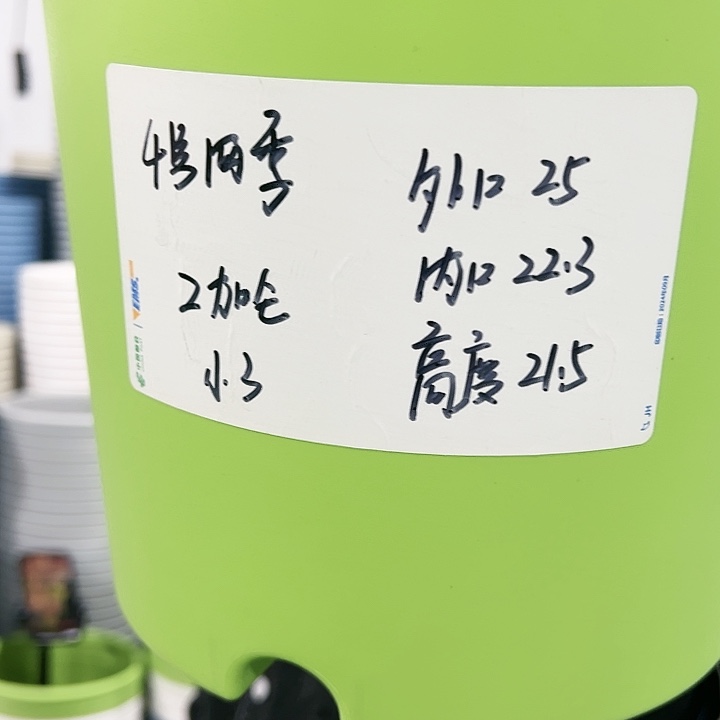 4号四季
2加仑
小.3
外口 25
内口 22.3
高度 21.5
EMS